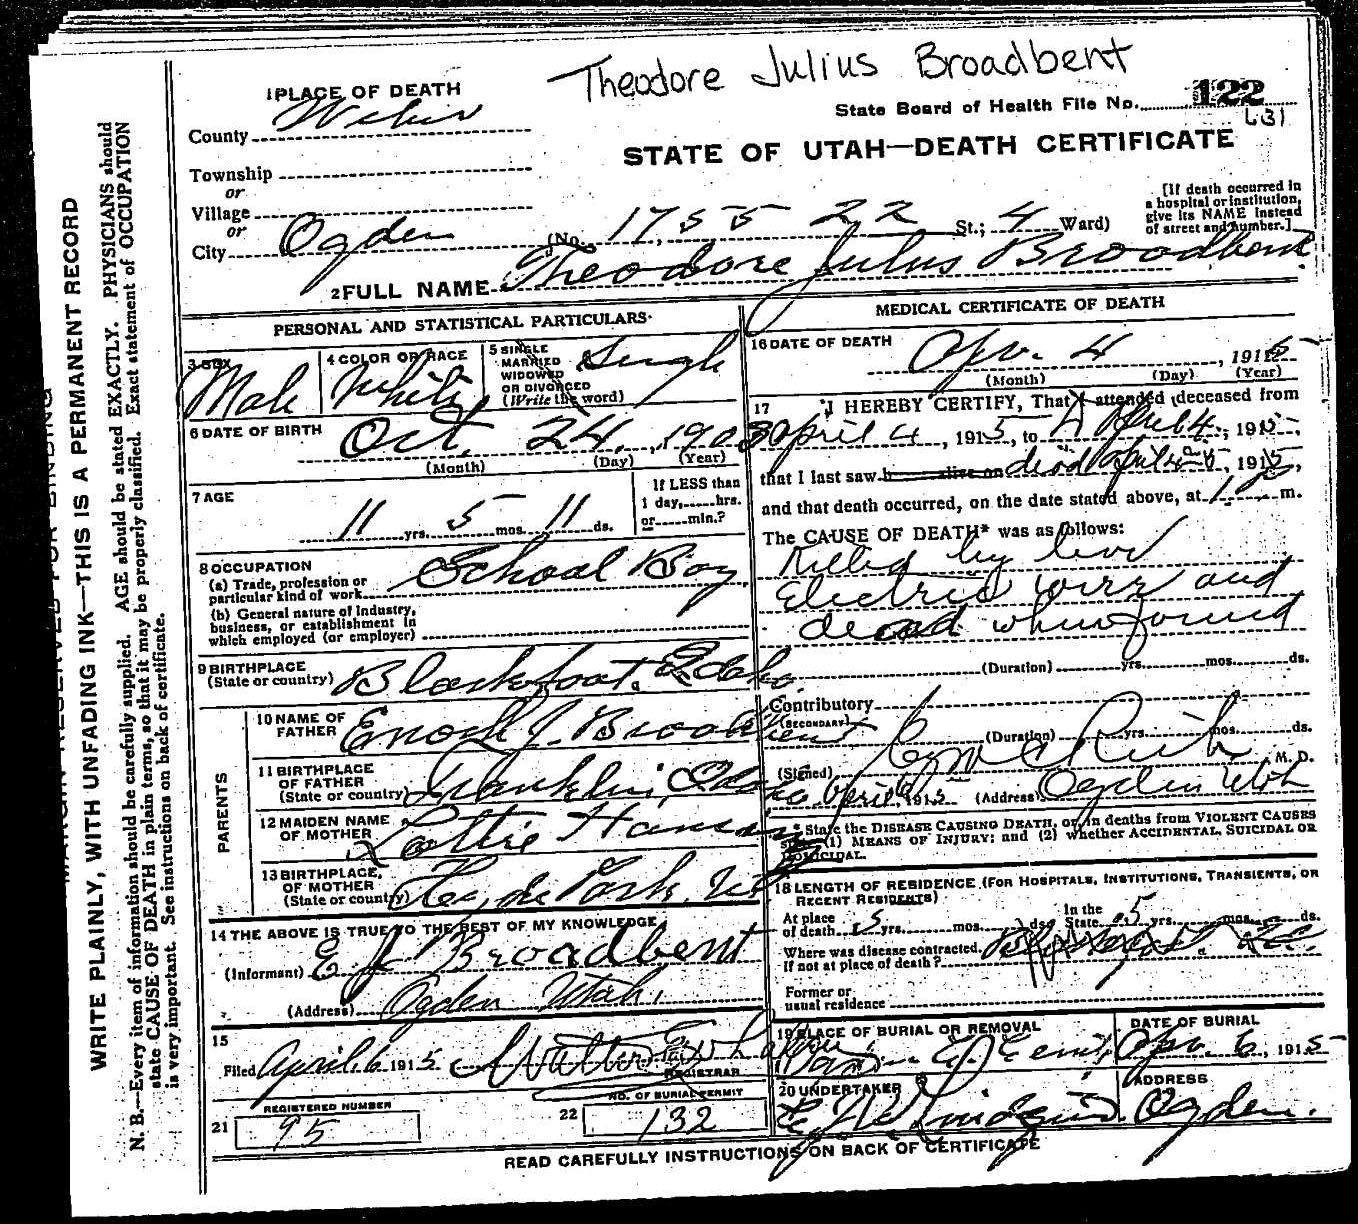 Theodore Julius Broadbent
1 PLACE OF DEATH
State Board of Health File No. 122
County Weber
STATE OF UTAH—DEATH CERTIFICATE
Township
or
Village
or
City Ogden (No. 1755 22 St.; 4 Ward)
[If death occurred in
a hospital or institution,
give its NAME instead
of street and number.]
2 FULL NAME Theodore Julius Broadbent
PERSONAL AND STATISTICAL PARTICULARS
3 SEX
Male
4 COLOR OR RACE
White
5 SINGLE
MARRIED
WIDOWED
OR DIVORCED
(Write the word)
Single
6 DATE OF BIRTH
Oct. 24, 1903
(Month) (Day) (Year)
7 AGE
11 yrs. 5 mos. 11 ds.
If LESS than
1 day, hrs.
or min.?
8 OCCUPATION
(a) Trade, profession or
particular kind of work School Boy
(b) General nature of industry,
business, or establishment in
which employed (or employer)
9 BIRTHPLACE
(State or country) Blackfoot, Idaho.
PARENTS
10 NAME OF
FATHER Enoch J. Broadbent
11 BIRTHPLACE
OF FATHER
(State or country) Franklin, Idaho
12 MAIDEN NAME
OF MOTHER Lottie Hansen
13 BIRTHPLACE,
OF MOTHER
(State or country) Hyde Park, Ut
14 THE ABOVE IS TRUE TO THE BEST OF MY KNOWLEDGE
(Informant) E J Broadbent
(Address) Ogden Utah,
15
Filed April 6 1915
REGISTRAR
21 REGISTERED NUMBER
95
22 NO. OF BURIAL PERMIT
132
MEDICAL CERTIFICATE OF DEATH
16 DATE OF DEATH
Apr. 4, 1915
(Month) (Day) (Year)
17 I HEREBY CERTIFY, That I attended deceased from
April 4, 1915, to April 4, 1915,
that I last saw h alive on dead April 4, 1915,
and that death occurred, on the date stated above, at 1 P m.
The CAUSE OF DEATH* was as follows:
Killed by live
Electric wire and
dead when found
(Duration) yrs. mos. ds.
Contributory
(SECONDARY)
(Duration) yrs. mos. ds.
(Signed) M. D.
April 1915 (Address) Ogden Utah
*State the DISEASE CAUSING DEATH, or, in deaths from VIOLENT CAUSES
state (1) MEANS OF INJURY; and (2) whether ACCIDENTAL, SUICIDAL OR
HOMICIDAL.
18 LENGTH OF RESIDENCE (FOR HOSPITALS, INSTITUTIONS, TRANSIENTS, OR
RECENT RESIDENTS)
At place
of death 5 yrs. mos. ds.
In the
State 5 yrs. mos. ds.
Where was disease contracted,
If not at place of death?
Former or
usual residence
19 PLACE OF BURIAL OR REMOVAL
DATE OF BURIAL
Apr. 6, 1915
20 UNDERTAKER
ADDRESS
Ogden.
READ CAREFULLY INSTRUCTIONS ON BACK OF CERTIFICATE
MARGIN RESERVED FOR BINDING
WRITE PLAINLY, WITH UNFADING INK—THIS IS A PERMANENT RECORD
N. B.—Every item of information should be carefully supplied. AGE should be stated EXACTLY. PHYSICIANS should
state CAUSE OF DEATH in plain terms, so that it may be properly classified. Exact statement of OCCUPATION
is very important. See instructions on back of certificate.